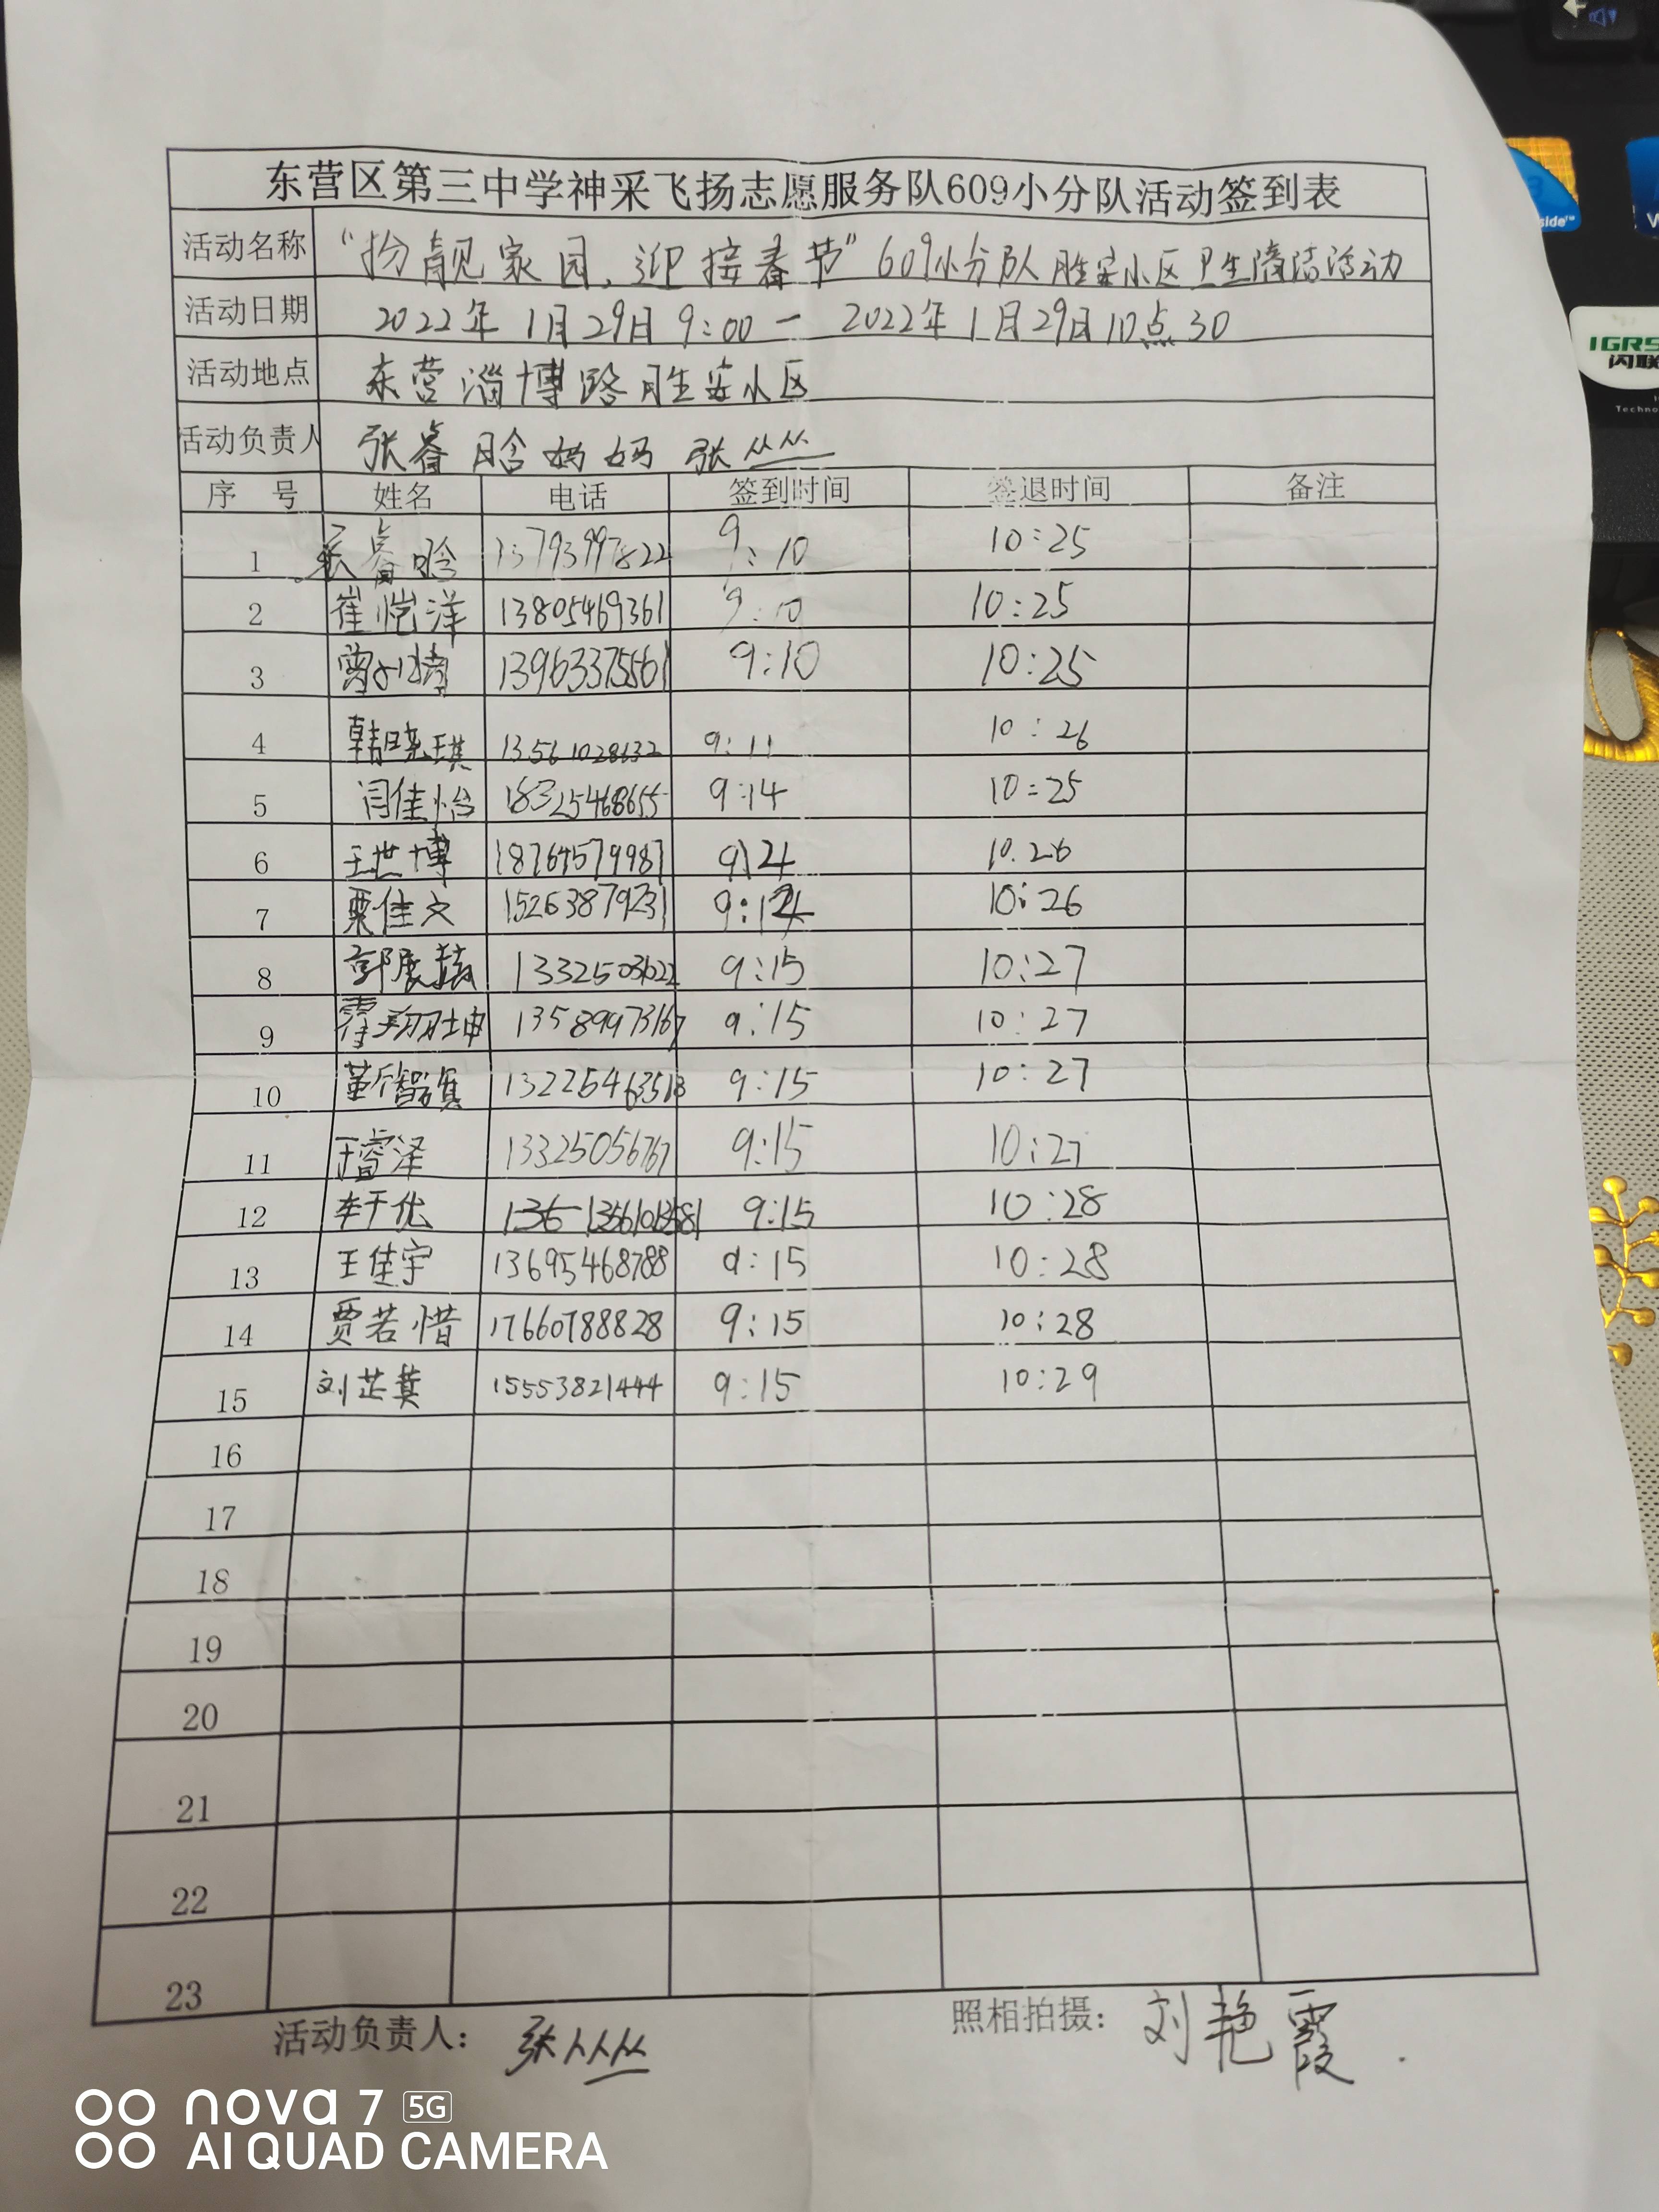 东营区第三中学神采飞扬志愿服务队609小分队活动签到表
活动名称 “扮靓家园，迎接春节”609小分队胜安小区卫生清洁活动
活动日期 2022年1月29日9:00一 2022年1月29日10点30
活动地点 东营淄博路胜安小区
活动负责人 张睿晗妈妈 张丛丛
序 号 姓名 电话 签到时间 签退时间 备注
1 张睿晗 13793997822 9:10 10:25
2 崔恺洋 13805469361 9:10 10:25
3 13963375561 9:10 10:25
4 韩晓琪 13561028632 9:11 10:26
5 闫佳怡 18325468655 9:14 10:25
6 王世博 18764579987 9:14 10.26
7 栗佳文 15263879231 9:14 10:26
8 郭展赫 13325031622 9:15 10:27
9 霍翔坤 13589973167 9:15 10:27
10 13225463518 9:15 10:27
11 于睿泽 13325056767 9:15 10:27
12 李于优 9:15 10:28
13 王佳宇 13695468788 9:15 10:28
14 贾若惜 17660788828 9:15 10:28
15 刘芷萁 15553821444 9:15 10:29
16
17
18
19
20
21
22
23
活动负责人： 张丛丛 照相拍摄： 刘艳霞.
nova 7 5G
AI QUAD CAMERA
IGRS
闪联